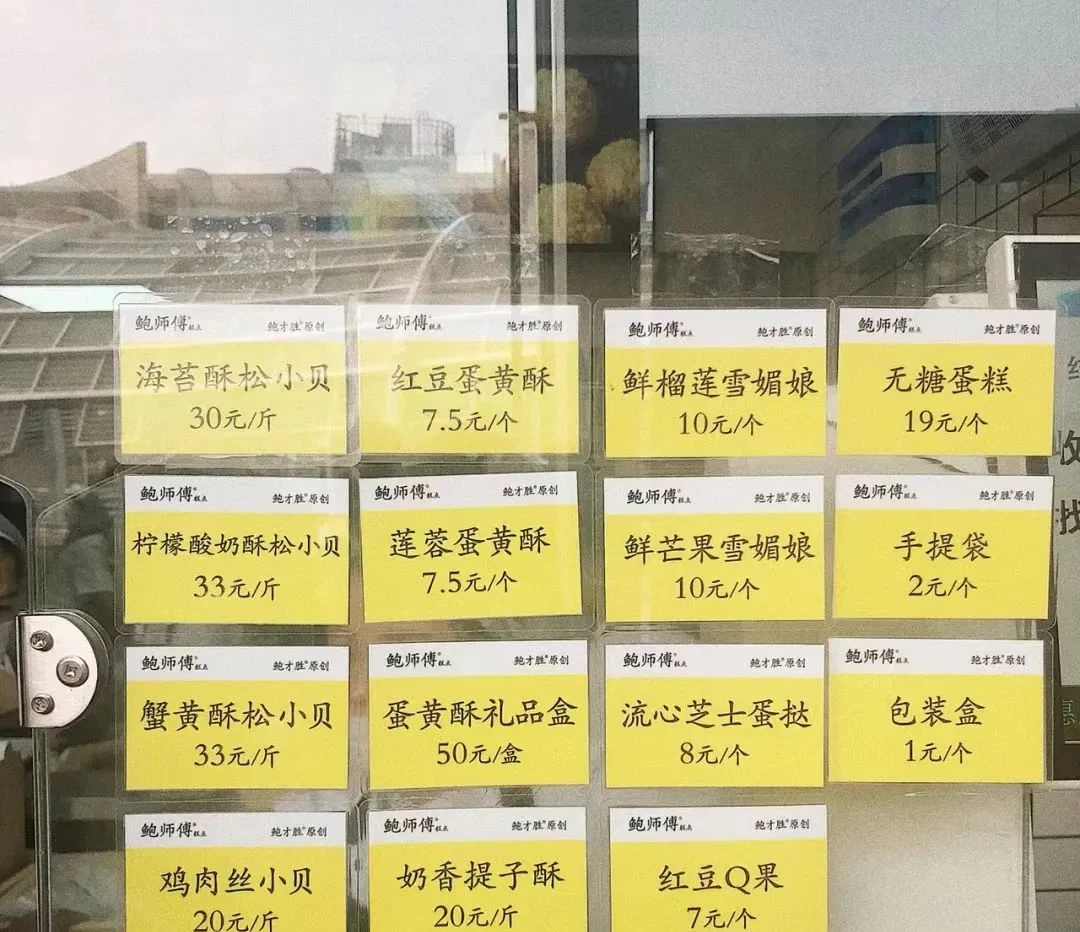 鲍师傅糕点 鲍才胜®原创
海苔酥松小贝
30元/斤
鲍师傅糕点 鲍才胜®原创
红豆蛋黄酥
7.5元/个
鲍师傅糕点 鲍才胜®原创
鲜榴莲雪媚娘
10元/个
鲍师傅糕点 鲍才胜®原创
无糖蛋糕
19元/个
鲍师傅糕点 鲍才胜®原创
柠檬酸奶酥松小贝
33元/斤
鲍师傅糕点 鲍才胜®原创
莲蓉蛋黄酥
7.5元/个
鲍师傅糕点 鲍才胜®原创
鲜芒果雪媚娘
10元/个
鲍师傅糕点 鲍才胜®原创
手提袋
2元/个
鲍师傅糕点 鲍才胜®原创
蟹黄酥松小贝
33元/斤
鲍师傅糕点 鲍才胜®原创
蛋黄酥礼品盒
50元/盒
鲍师傅糕点 鲍才胜®原创
流心芝士蛋挞
8元/个
鲍师傅糕点 鲍才胜®原创
包装盒
1元/个
鲍师傅糕点 鲍才胜®原创
鸡肉丝小贝
20元/斤
鲍师傅糕点 鲍才胜®原创
奶香提子酥
20元/斤
鲍师傅糕点 鲍才胜®原创
红豆Q果
7元/个
收
找